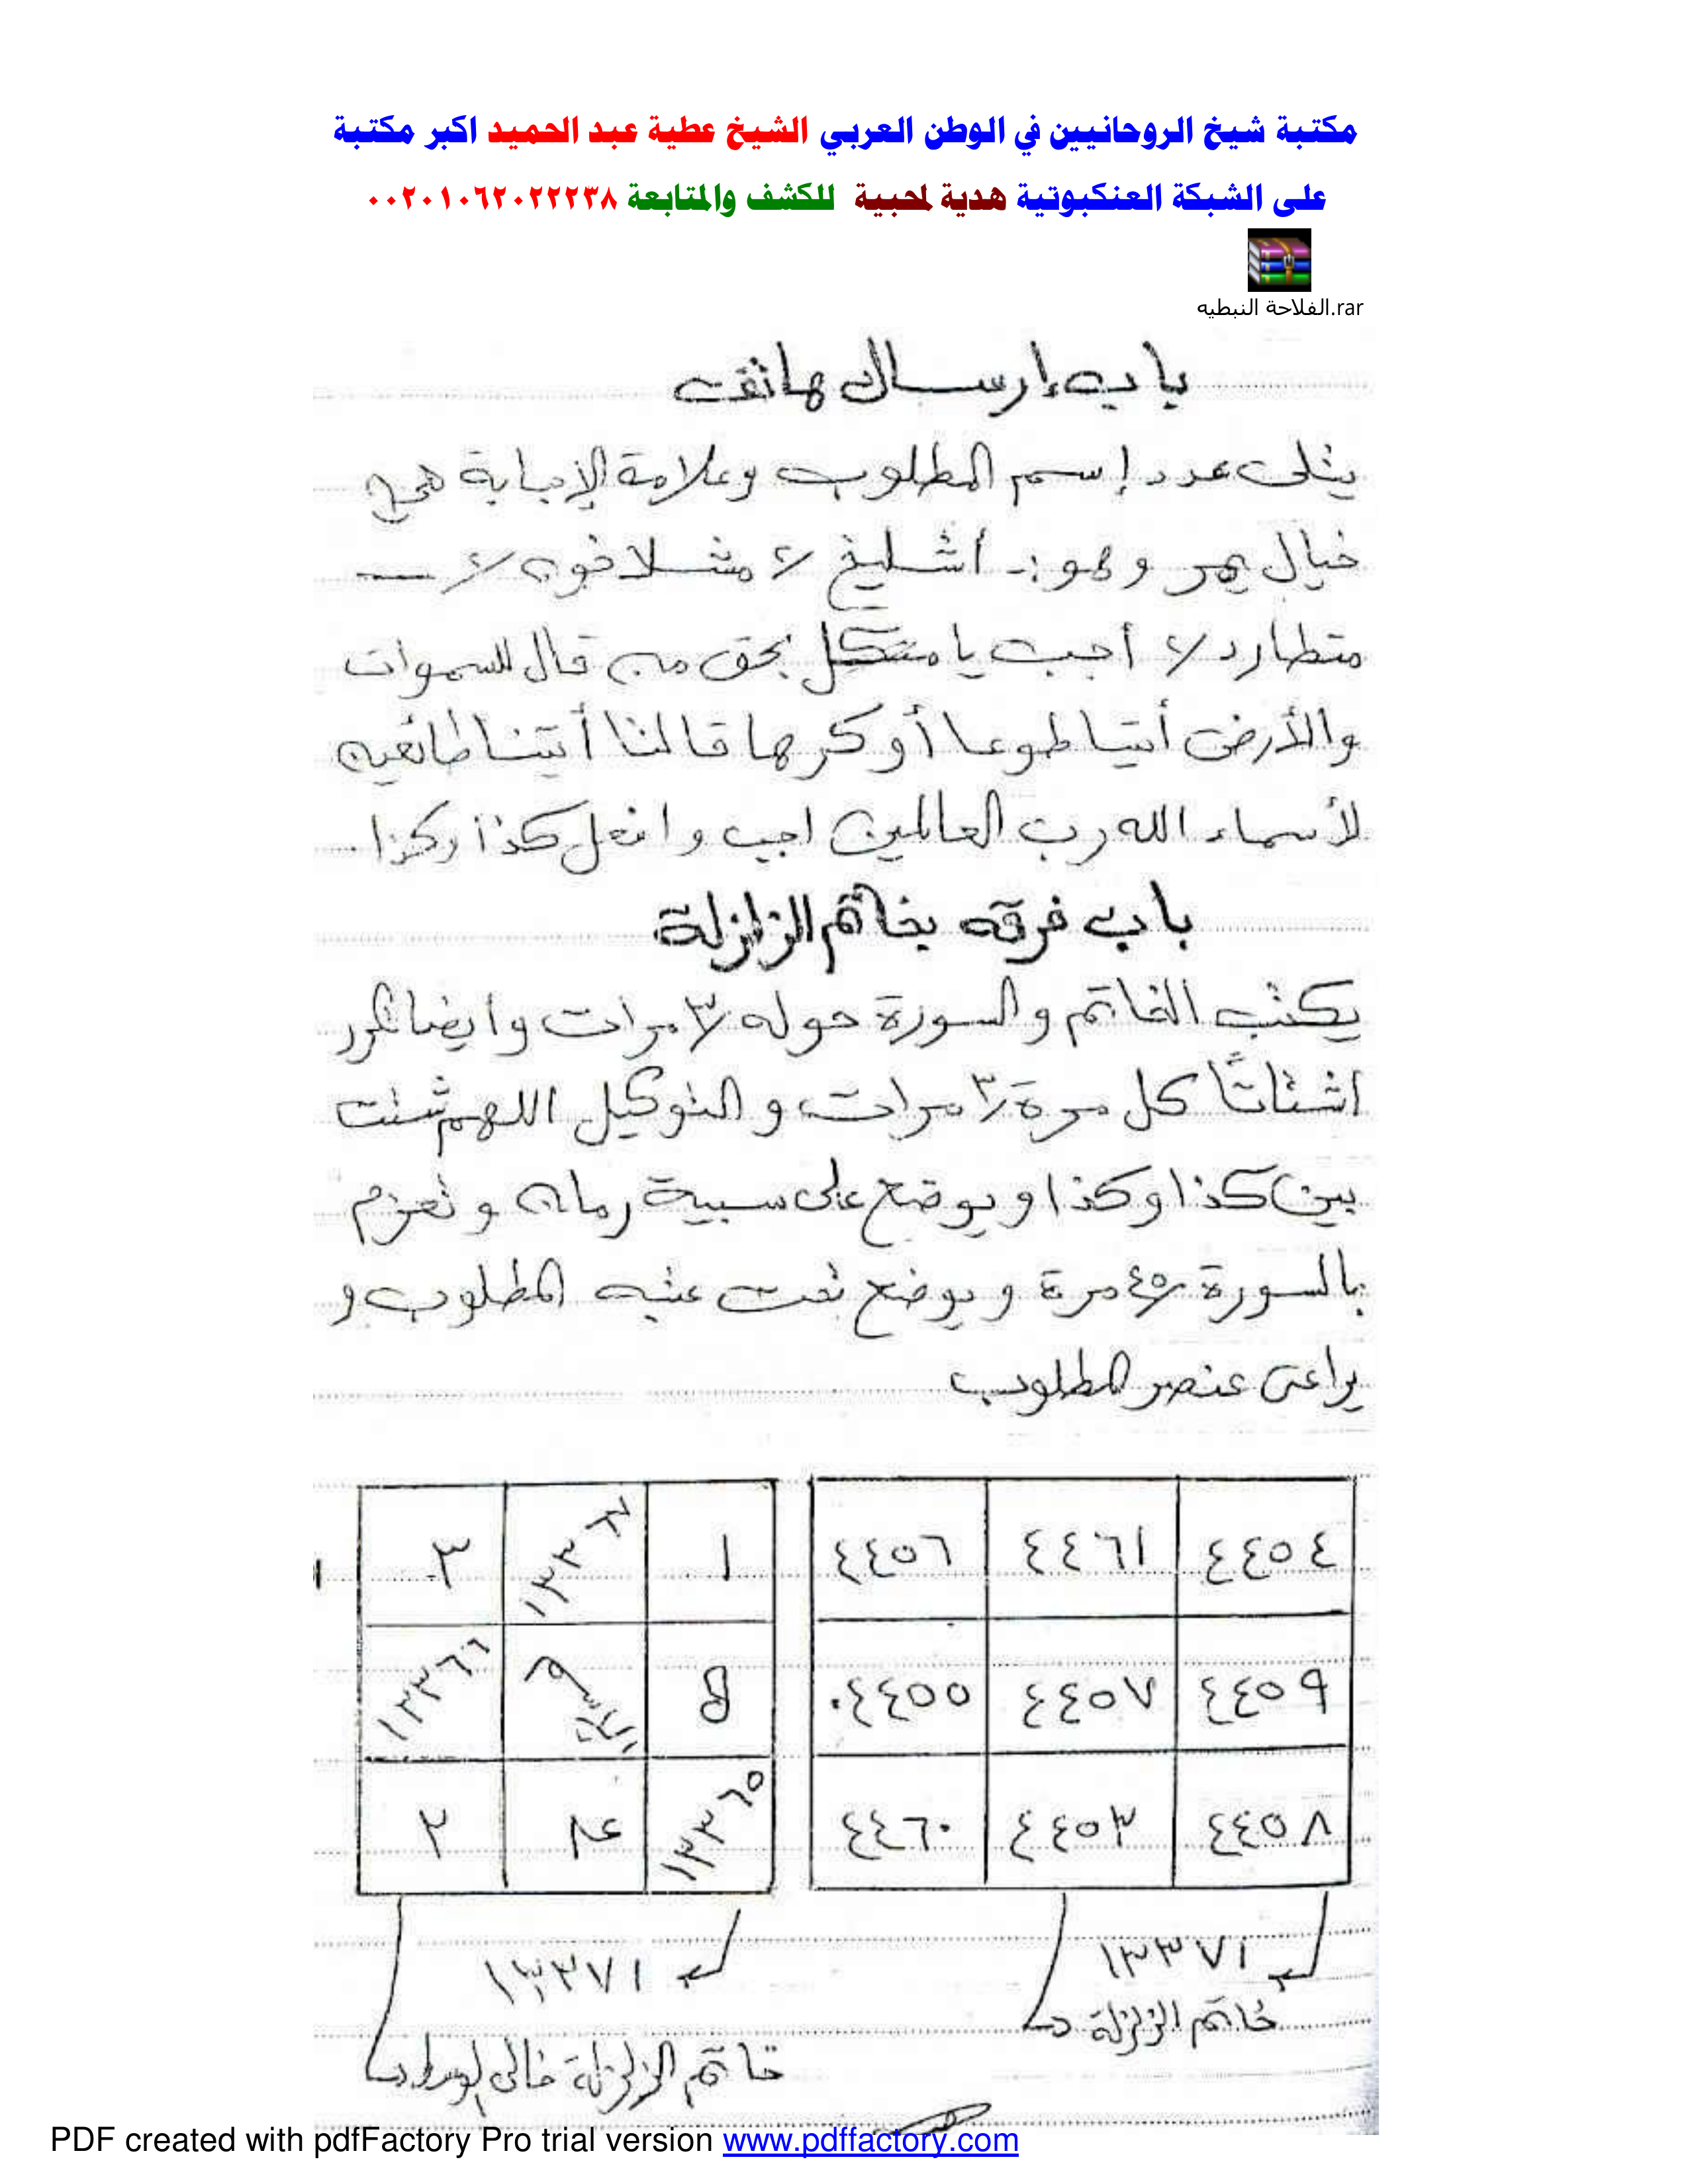 مكتبة شيخ الروحانيين في الوطن العربي الشيخ عطية عبد الحميد اكبر مكتبة
على الشبكة العنكبوتية هدية لمحبية للكشف والمتابعة ٠٠٢٠١٠٦٢٠٢٢٢٣٨
الفلاحة النبطيه.rar
باب إرسال هاتف
يتلى عدد إسم المطلوب وعلامة الإجابة هي
خيال يمر وهو :- أشليخ ٢ مشلاخون ٢
متطارد ٢ أجب يا متكل بحق من قال للسموات
والأرض أتيا طوعا أو كرها قالتا أتينا طائعين
لأسماء الله رب العالمين اجب وافعل كذا وكذا
باب فرقه بخاتم الزلزلة
يكتب الخاتم والسورة حوله ٣ مرات وايضا تكرر
اشتاتًا كل مرة ٣ مرات والتوكيل اللهم شتت
بين كذا وكذا ويوضع على سبية رمان وتعزم
بالسورة ٤٥ مرة ويوضع تحت عتبه المطلوب و
يراعى عنصر المطلوب
٤٤٥٤ ٤٤٦١ ٤٤٥٦
٤٤٥٩ ٤٤٥٧ ٤٤٥٥
٤٤٥٨ ٤٤٥٣ ٤٤٦٠
١ ١٣٣٦٧ ٣
١٣٣٦٦
١٣٣٦٥ ٢
١٣٣٧١
خاتم الزلزلة
١٣٣٧١
خاتم الزلزلة خالى
PDF created with pdfFactory Pro trial version www.pdffactory.com